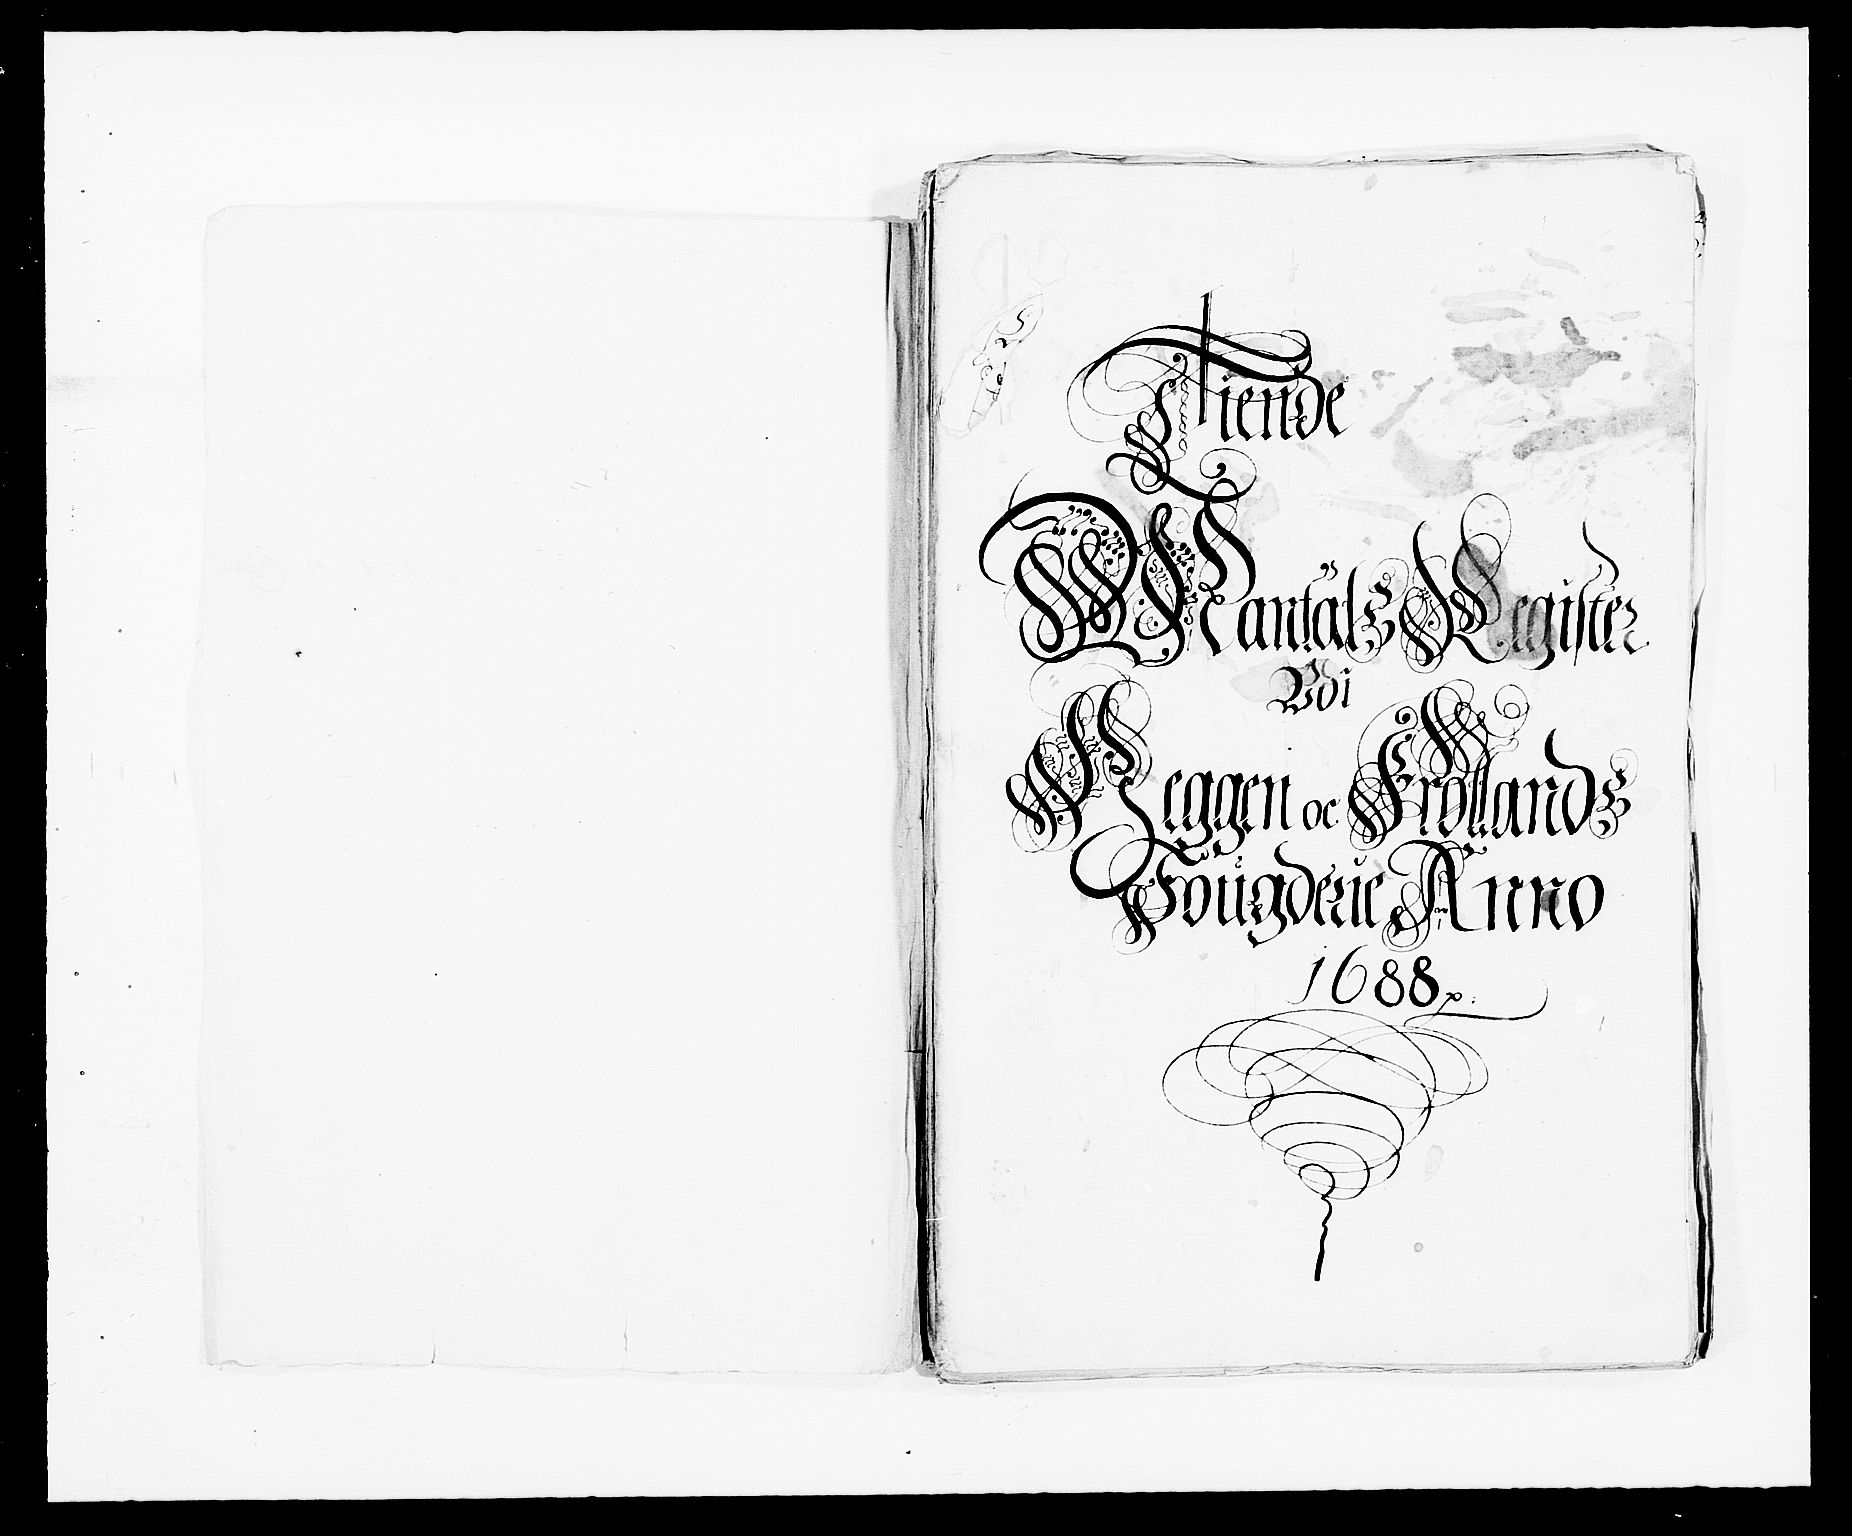 Tiende
Mantals Register
Udi
Heggen oc Frøllands
Fougderie Anno
1688